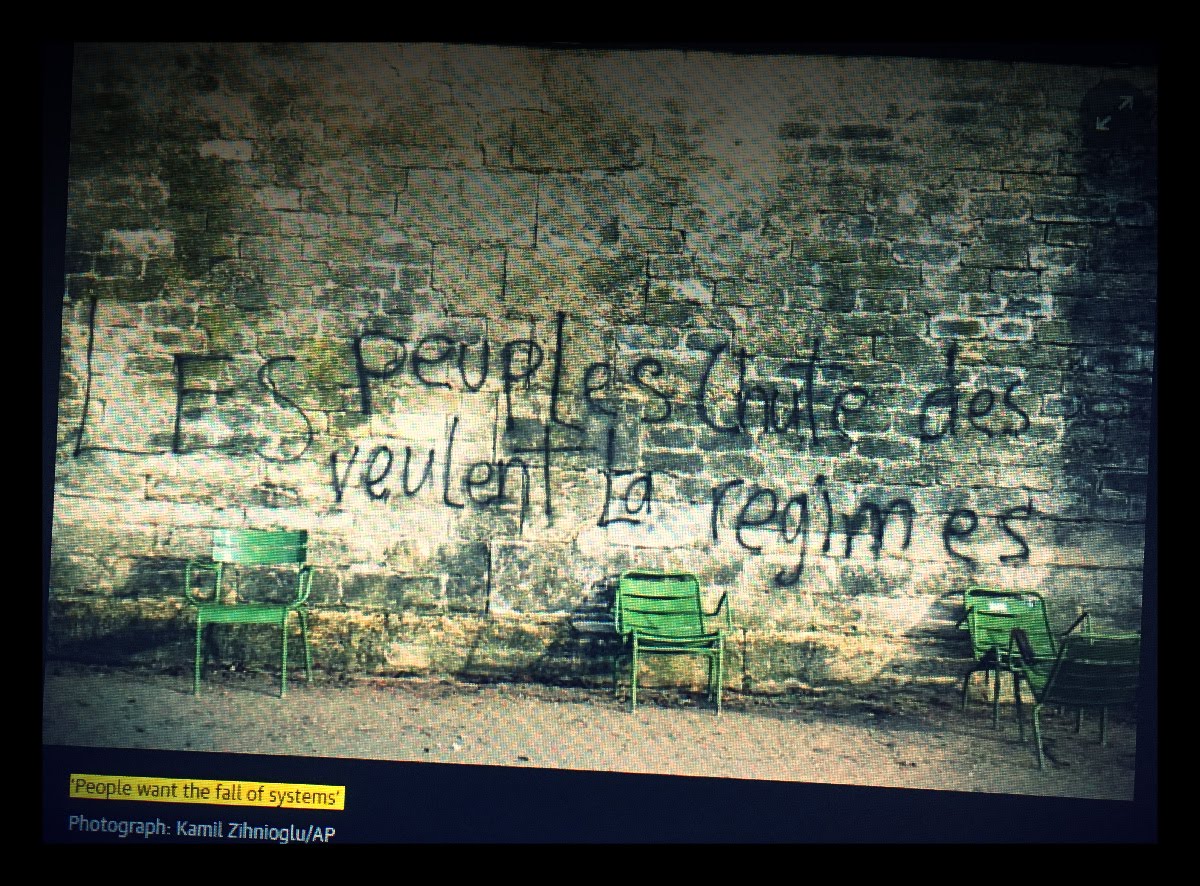 LES peuples Chute des
veulent La regimes
'People want the fall of systems'
Photograph: Kamil Zihnioglu/AP